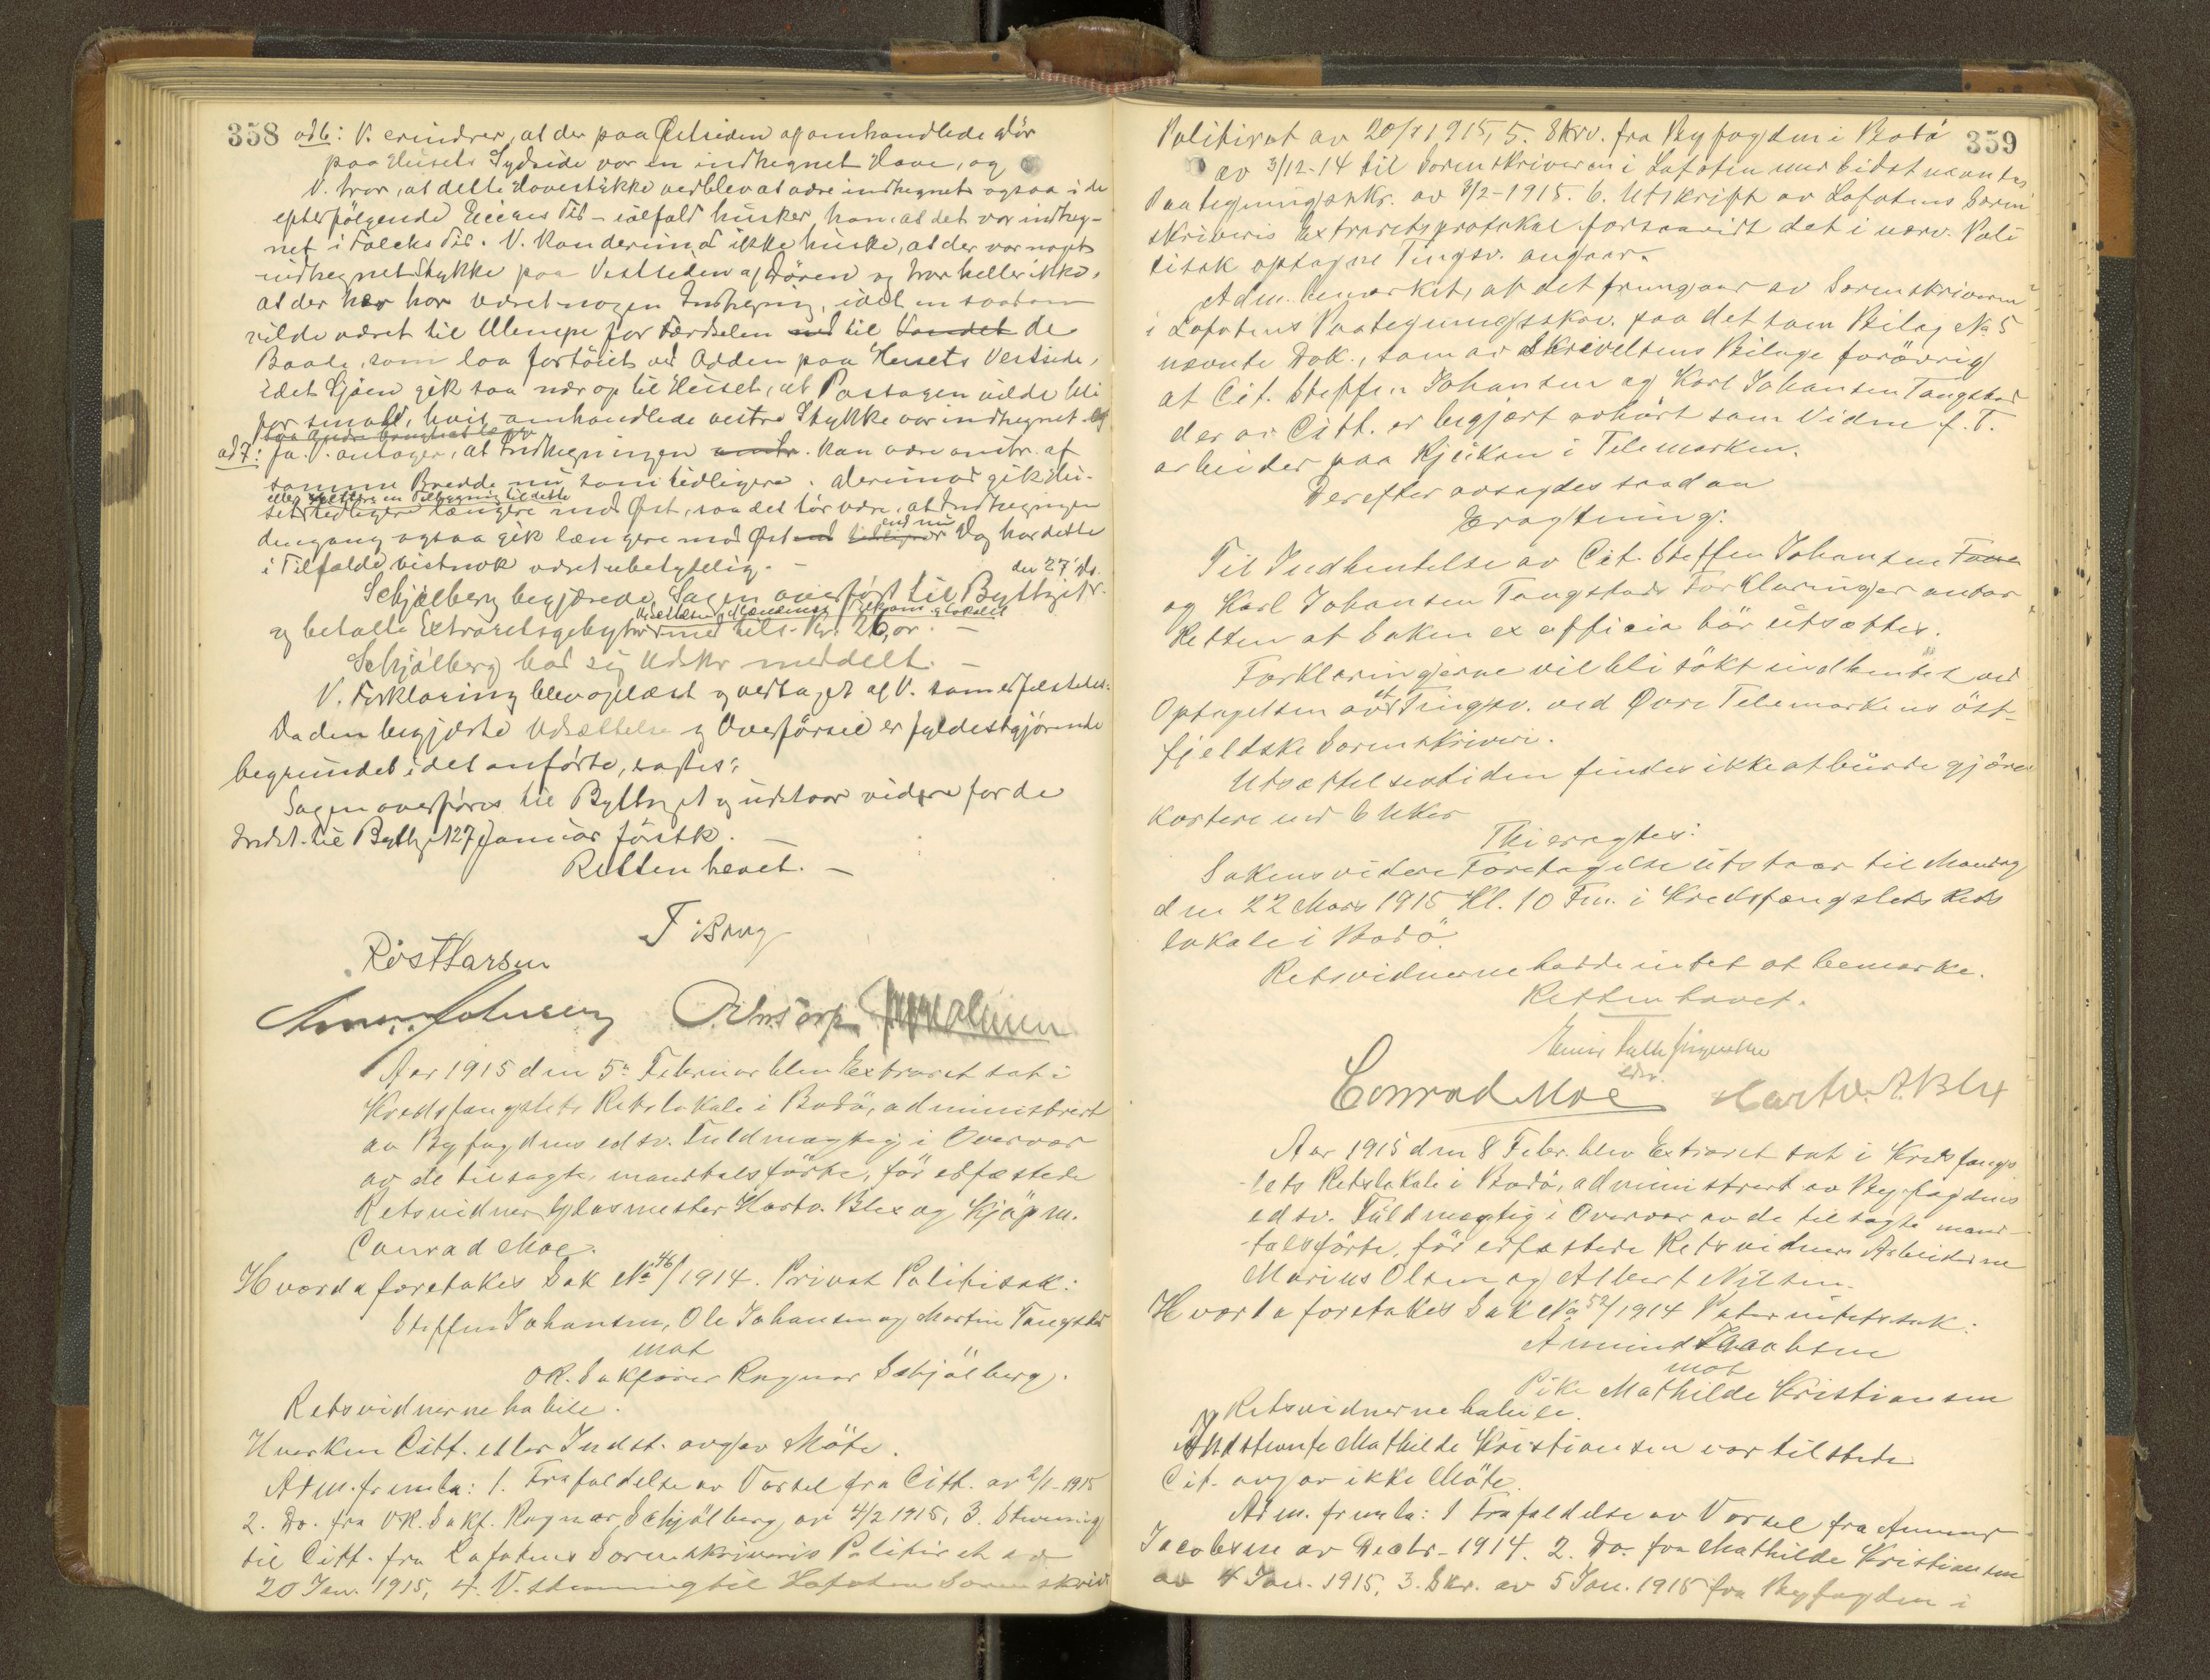 358
ad 6: V. erindrer, at der paa Østsiden af omhandlede Dör
paa Husets Sydside var en indhegnet Have, og
V. tror, at dette Havestykke vedblev at være indhegnet ogsaa i de
efterfölgende Eieres Tid - ialfald husker han, at det var indheg-
net i Falchs Tid. V. kan derimod ikke huske, at der var noget
indhegnet Stykke paa Vestsiden af Dören og tror heller ikke,
at der her har været nogen Indhegning, idet en saadan
vilde været til Ulempe for Færdselen ned til Vandet de
Baade, som laa fortöiet ved Odden paa Husets Vestside,
idet Sjöen gik saa nær op til Huset, at Passagen vilde bli
for smal, hvis omhandlede vestre Stykke var indhegnet.
ad 7: Ja. V. antager, at Indhegningen omtr. kan være omtr. af
samme Bredde nu som tidligere. Derimod gik Hu-
eller rettere en Tilbygning til dette
set tidligere længere mod Øst, saa det tör være, at Indhegningen
dengang ogsaa gik længere mod Øst end nu. Dog har dette
i Tilfælde vistnok været ubetydelig. -
den 27 ds.
Schjølberg begjærede Sagen overført til Bythinget
og betalte Extraretsgebyr med tils. Kr. 26, or. -
Schjølberg bad sig Udskr. meddelt. -
V. Forklaring blev oplæst og vedtaget af V. som edfæstedes.
Da den begjærte Udsættelse og Overförsel er fyldestgjørende
begrundet i det anförte, eragtes:
Sagen overføres til Bythinget og udstaar videre for de
Indst. til Bythinget 27 Januar förstk. -
Retten hevet. -
Röst Larsen
Aar 1915 den 5. Februar blev Extraret sat i
Kredsfængslets Retslokale i Bodö, administrert
av Byfogdens edsv. Fuldmægtig i Overvær
av de tilsagte, mandtalsförte, för edfæstede
Retsvidner Glasmester Hartv. Blix og Kjöpm.
Conrad Moe.
Hvorda foretokes Sak No 46/1914. Privat Politisak:
Steffen Johansen, Ole Johansen og Martin Tangstad
mot
OR. Sakförer Ragnar Schjölberg.
Retsvidnerne habile.
Hverken Citt. eller Indst. avgav Möte.
Adm. freml.: 1. Frafaldelse av Varsel fra Citt. av 2/1-1915
2. Do. fra OR. Sakf. Ragnar Schjölberg av 4/2 1915, 3. Stevning
til Citt. fra Lofotens Sorenskriveris Politiret av
20 Jan. 1915, 4. V. stevning til Lofotens Sorenskriv
359
Politiret av 20/1 1915, 5. Skrv. fra Byfogden i Bodö
av 3/12-14 til Sorenskriveren i Lofoten med sidstnævntes
Paategningsskr. av 3/2-1915. 6. Utskrift av Lofotens Soren
skriveris Extraretsprotokol forsaavidt det i nærv. Poli
tisak optagne Tingsv. angaar.
Adm. bemerket, at det fremgaar av Sorenskriveren
i Lofotens Paategningsskrv. paa det som Bilag No 5
nævnte Dok., som av Skriveltens Bilage forövrig
at Cit. Steffen Johansen og Karl Johansen Tangstad
der av Citt. er begjært avhört som Vidne f. T.
arbeider paa Rjukan i Telemarken.
Derefter avsagdes saadan
Eragtning:
Til Indhentelse av Cit. Steffen Johansen
og Karl Johansen Tangstads Forklaringer anser
Retten at Saken ex officio bör utsættes.
Forklaringerne vil bli sökt indhentet ved
Optagelsen av Tingsv. ved Övre Telemarkens öst-
fjeldske Sorenskriveri.
Utsættelsestiden findes ikke at burde gjöres
kortere end 6 Uker
Thi eragtes:
Sakens videre Foretagelse utstaar til Mandag
den 22 Mars 1915 Kl. 10 Fm. i Kredsfængslets Rets
lokale i Bodö.
Retsvidnerne hadde intet at bemerke.
Retten hævet.
edsv.
Conrad Moe Hartv. A. Blix
Aar 1915 den 8 Febr. blev Extraret sat i Kredsfængs
lets Retslokale i Bodö, administrert av Byfogdens
edsv. Fuldmægtig i Overvær av de tilsagte mand-
talsförte, för edfæstede Retsvidner Arbeiderne
Marius Olsen og Albert Nilsen.
Hvorda foretokes Sak No 52/1914 Paternitetssak:
Amund Jacobsen
mot
Pike Mathilde Kristiansen
Retsvidnerne habile.
Indstevnte Mathilde Kristiansen var tilstede
Cit. avgav ikke Möte.
Adm. freml.: 1 Frafaldelse av Varsel fra Amund
Jacobsen av Decbr. 1914. 2. Do. fra Mathilde Kristiansen
av 4 Jan. 1915, 3. Skr. av 5 Jan. 1915 fra Byfogden i